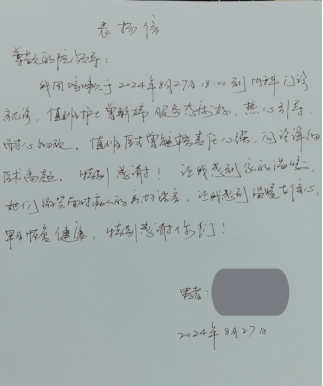 表扬信
尊敬的院领导：
我因咳嗽于2024年8月27日18:00到内科门诊
就诊，值班护士曾 服务态度好，热心引导，
耐心细致。值班医生曾 责任心强，问诊详细
医术高超。特别感谢！让我感到家的温暖。
她们微笑面对病人的 ，让我感到温暖有信心，
早日恢复健康，特别感谢你们！
患者：
2024年8月27日